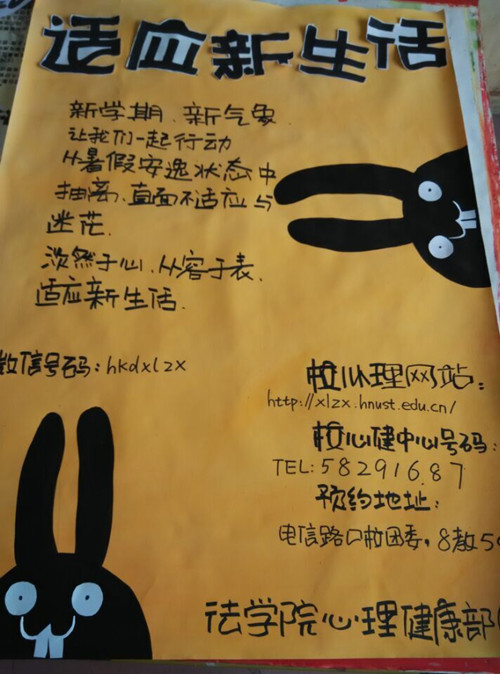 适应新生活
新学期、新气象
让我们一起行动
从暑假安逸状态中
抽离、直面不适应与
迷茫.
淡然于心、从容于表、
适应新生活.
微信号码：hkdxlzx
校心理网站：
http://xlzx.hnust.edu.cn/
校心健中心号码：
TEL: 58291687
预约地址：
电信路口校团委，8教5
法学院心理健康部